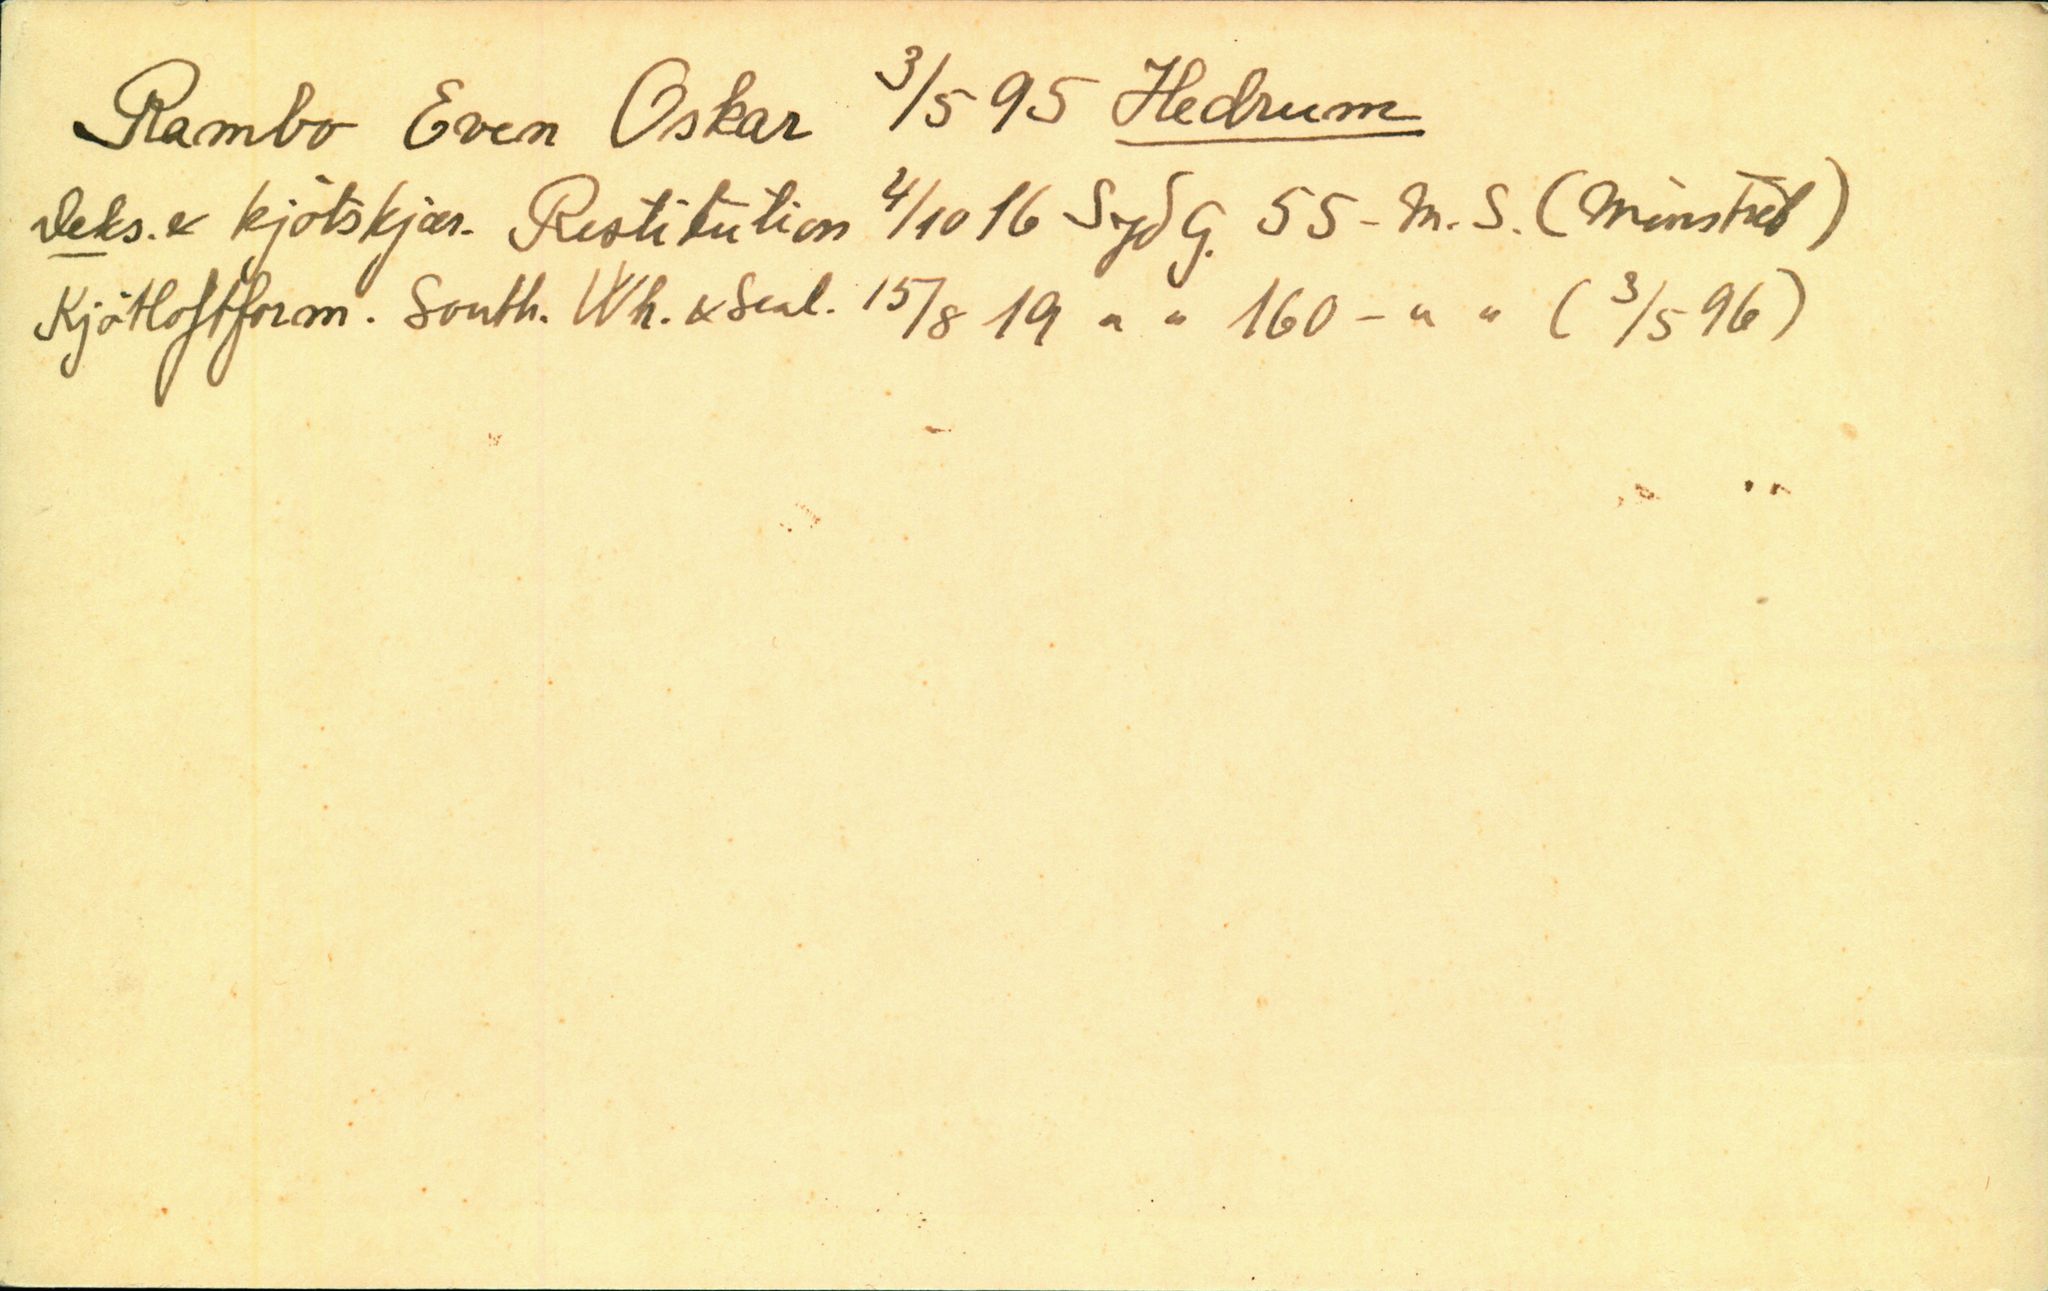 Rambo Even Oskar 3/5 95 Hedrum
Deks. & kjötskjær. Restitution 4/10 16 Syd G. 55 - M. S. (Minstreb)
Kjötloftform. South. Wh. & Seal. 15/8 19 " " 160 - " " (3/5 96)